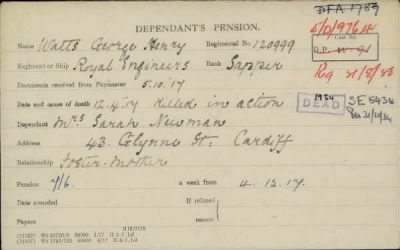 DEPENDANT'S PENSION.
DFA 1789
5/D/9764
Name Watts George Henry
Regimental No. 120999
Case No.
D.P.
Regiment or Ship Royal Engineers
Rank Sapper
Rg 21/8/30
Documents received from Paymaster 5.10.17
Date and cause of death 12.4.17 Killed in action
DEAD
Dependant Mrs Sarah Newman
Address 43. Glynne St: Cardiff
Relationship Foster-Mother
Pension 7/6.
a week from 4.12.17.
Date awarded
If refused
Papers
reason